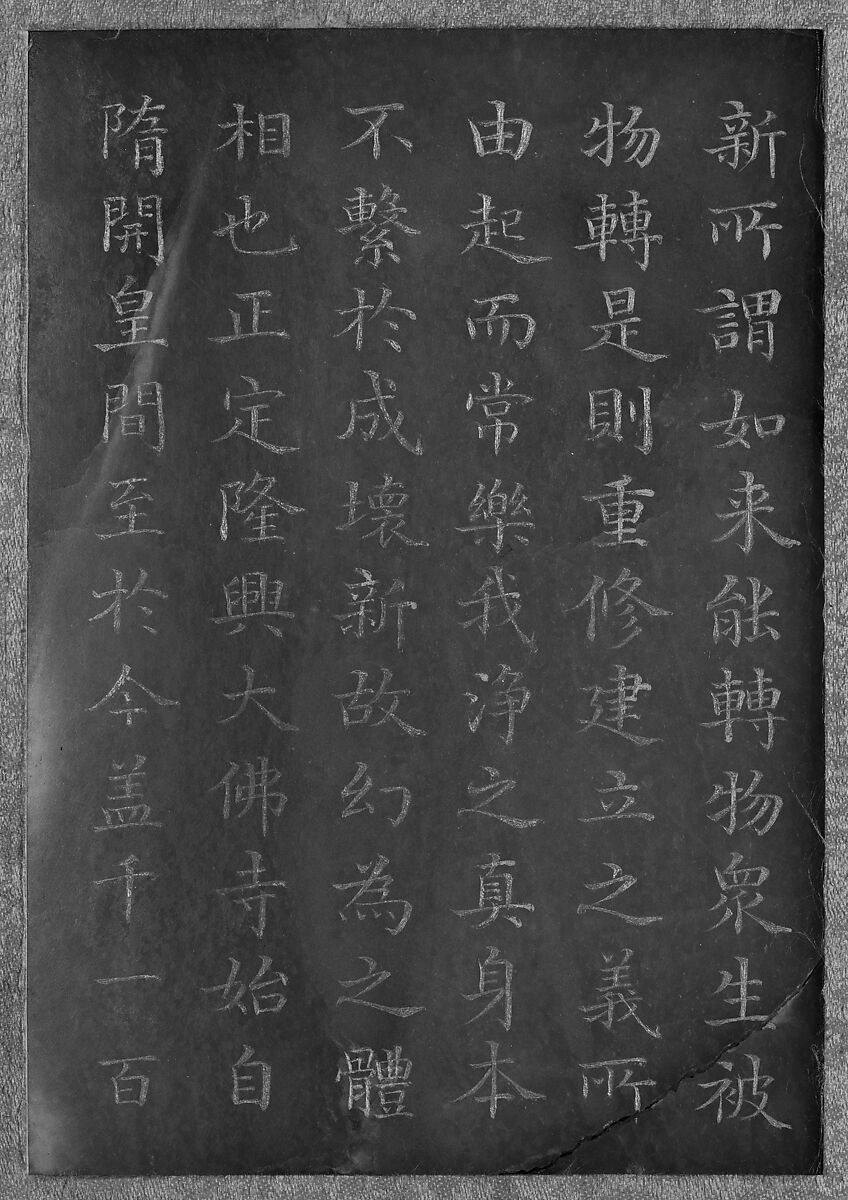 新所謂如来能轉物衆生被
物轉是則重修建立之義所
由起而常樂我浄之真身本
不繫於成壞新故幻為之體
相也正定隆興大佛寺始自
隋開皇間至於今盖千一百